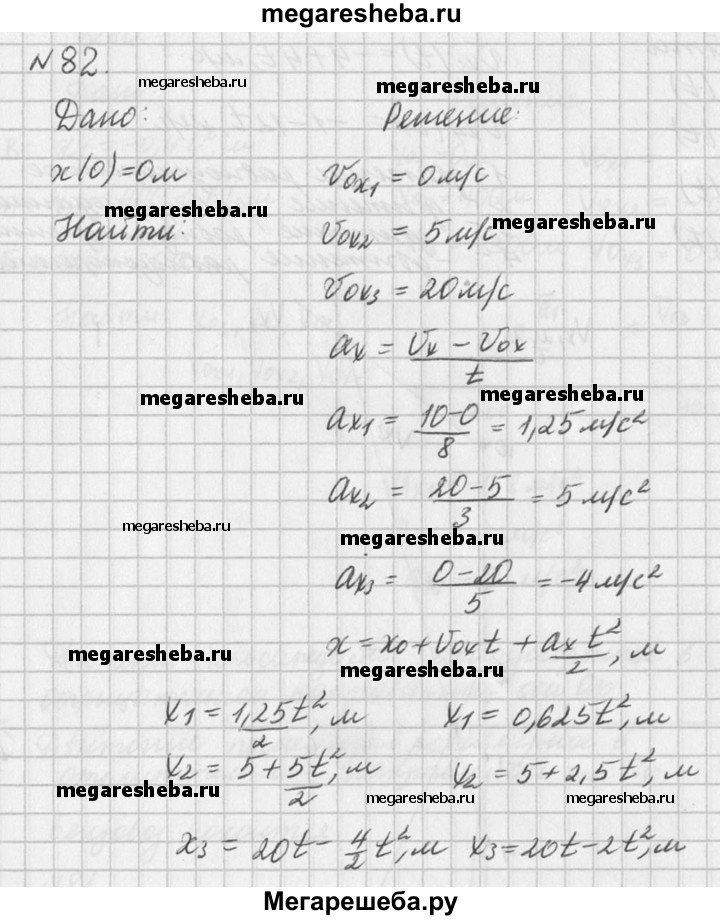 megaresheba.ru
№82.
megaresheba.ru
Дано: Решение:
x(0)=0м v₀ₓ₁ = 0м/с
megaresheba.ru
Найти: v₀ₓ₂ = 5м/с
megaresheba.ru
v₀ₓ₃ = 20м/с
aₓ = (vₓ − v₀ₓ)/t
megaresheba.ru megaresheba.ru
aₓ₁ = (10-0)/8 = 1,25м/с²
aₓ₂ = (20-5)/3 = 5м/с²
megaresheba.ru megaresheba.ru
aₓ₃ = (0-20)/5 = -4м/с²
x = x₀ + v₀ₓt + aₓt²/2, м
megaresheba.ru megaresheba.ru
x₁ = 1,25t²/2, м x₁ = 0,625t², м
x₂ = 5 + 5t²/2, м x₂ = 5+2,5t², м
megaresheba.ru megaresheba.ru megaresheba.ru
x₃ = 20t − 4/2 t², м x₃ = 20t − 2t², м
Мегарешеба.ру